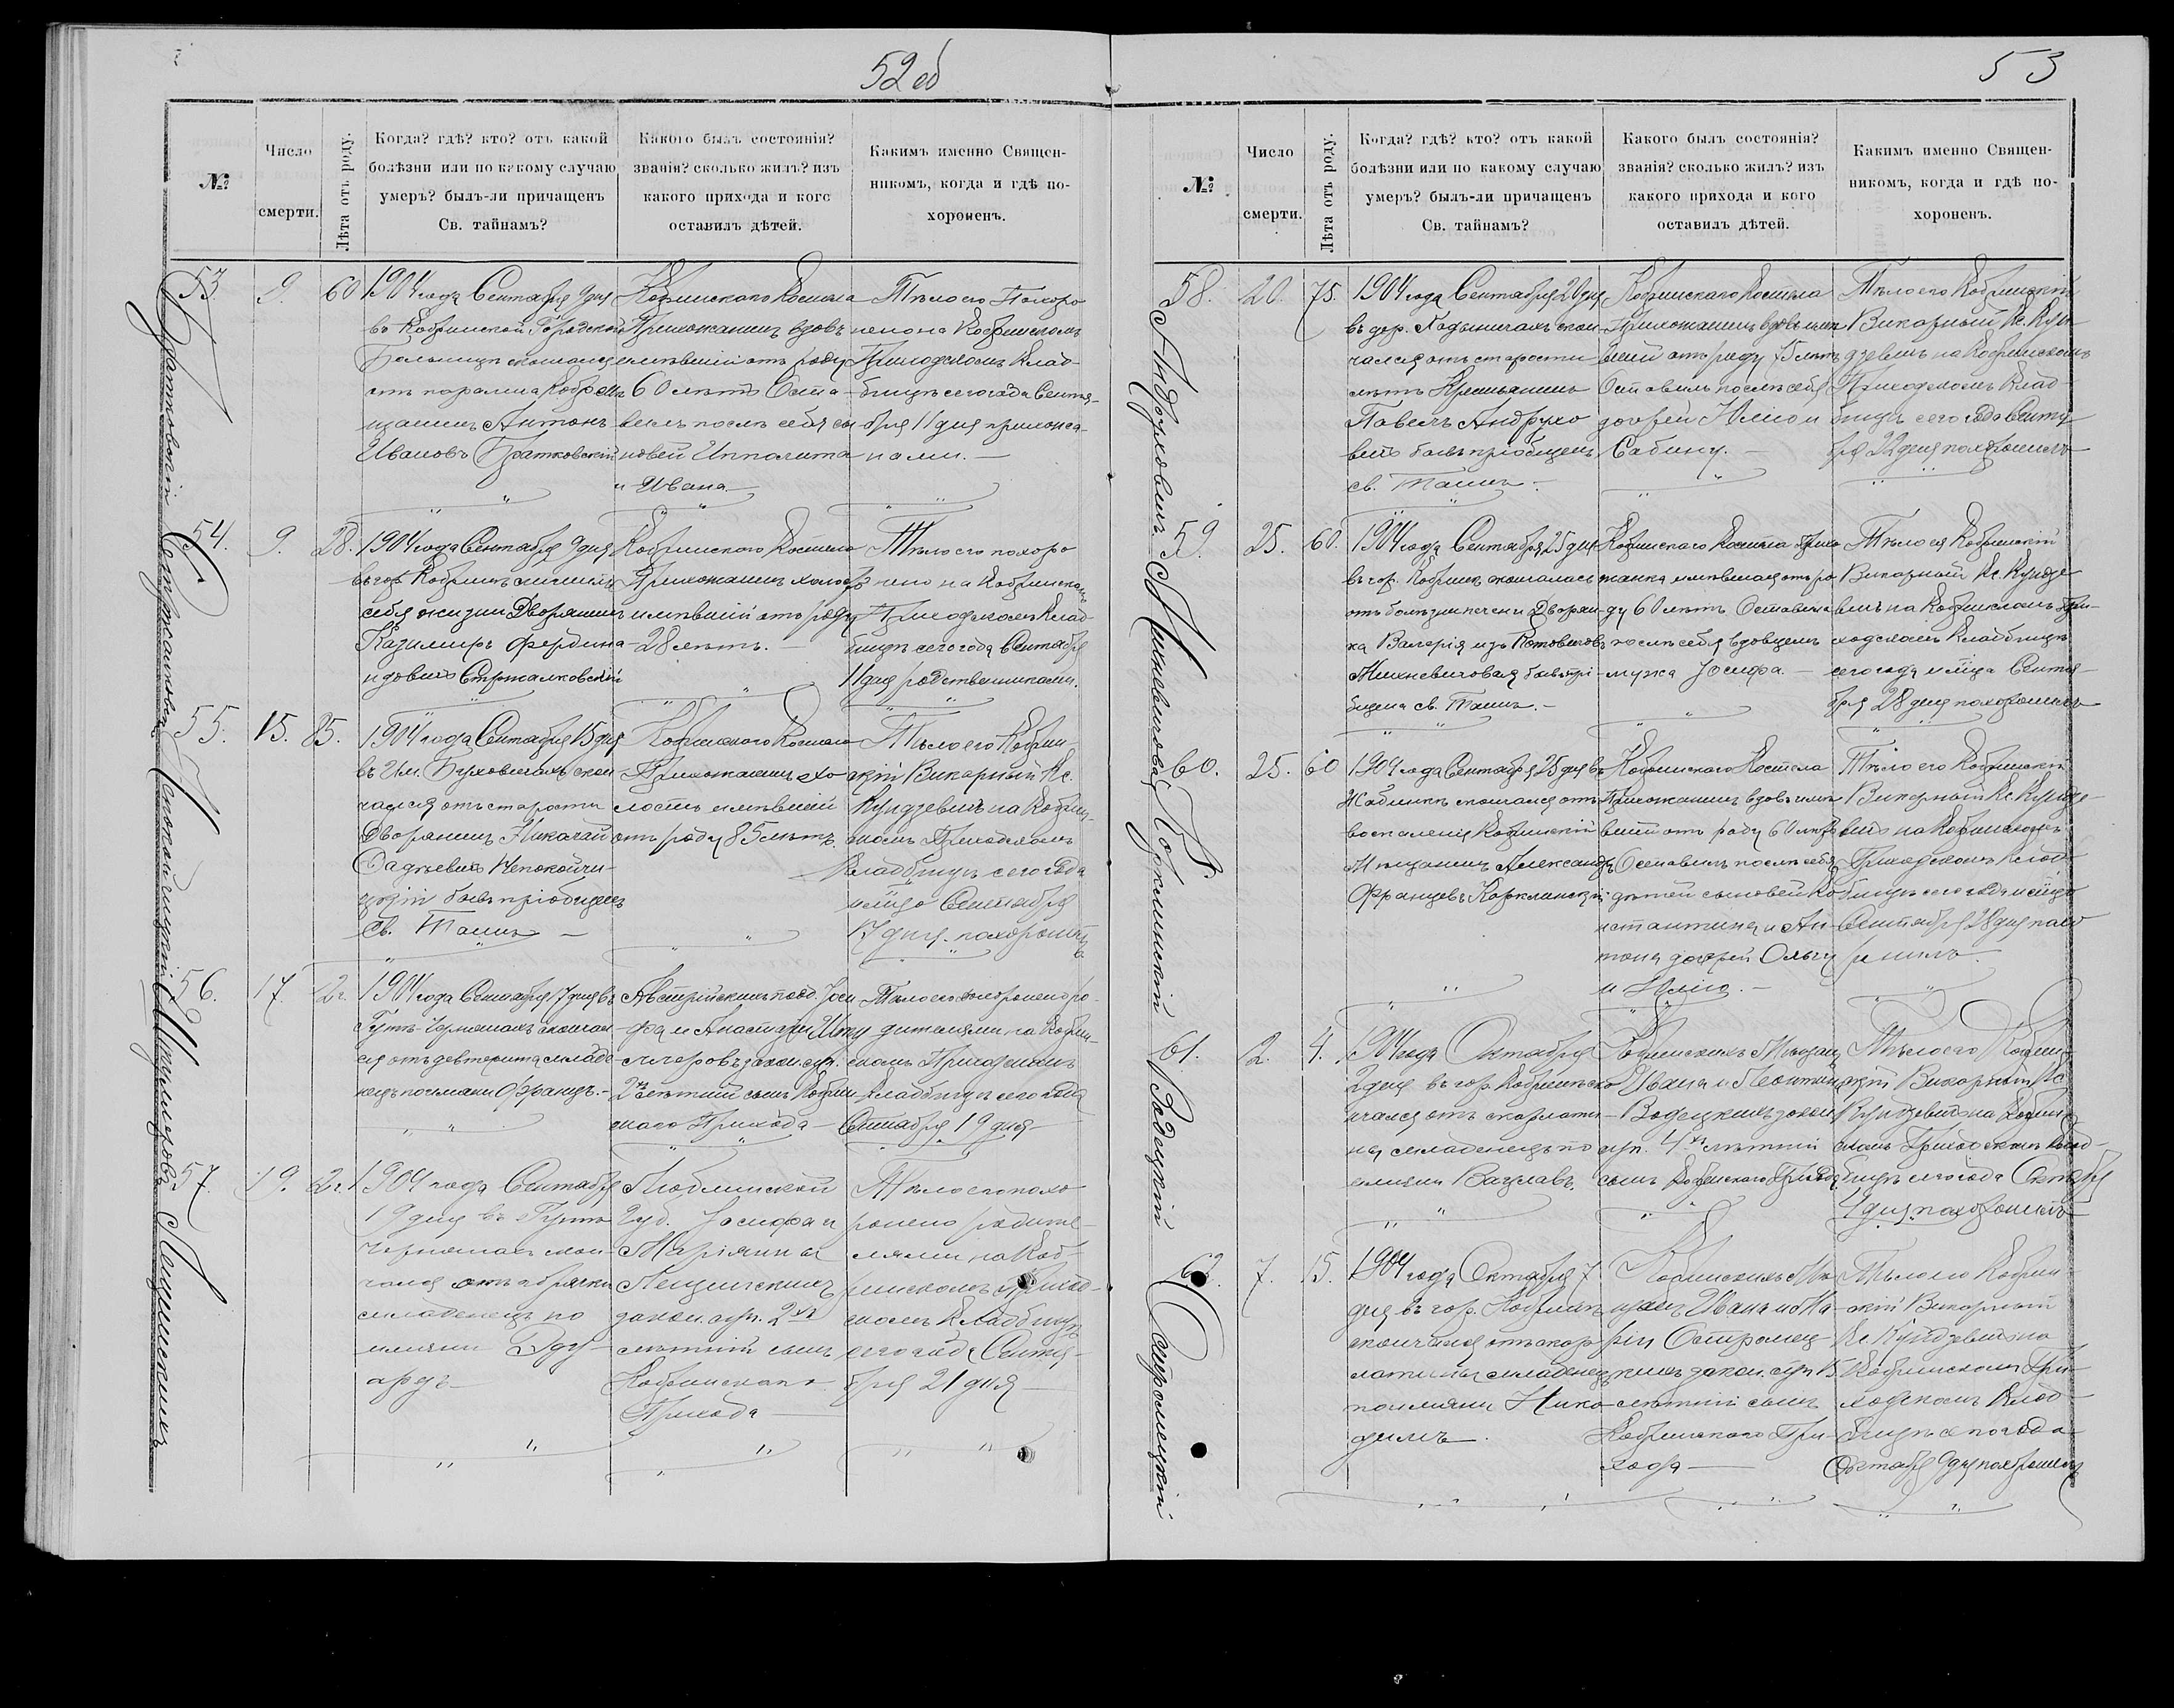 52 об
№
Число
смерти.
Лѣта отъ роду.
Когда? гдѣ? кто? отъ какой
болѣзни или по какому случаю
умеръ? былъ-ли причащенъ
Св. тайнамъ?
Какого былъ состоянія?
званія? сколько жилъ? изъ
какого прихода и кого
оставилъ дѣтей.
Какимъ именно Священ-
никомъ, когда и гдѣ по-
хороненъ.
53.
9.
60
1904 года Сентября 9 дня
въ Кобринской Городской
больницѣ скончался
отъ паралича Кобр. мѣ
щанинъ Антонъ
Ивановъ Братковскій
Кобринскаго Костела
Прихожанинъ вдовъ
имѣвшій отъ роду
60 лѣтъ Оста-
вилъ послѣ себя сы
новей Ипполита
и Ивана.
Тѣло его Похоро
нено на Кобринскомъ
Приходскомъ Клад-
бищѣ сего года Сентя-
бря 11 дня прихожа-
нами.
54.
9.
28.
1904 года Сентября 9 дня
въ гор. Кобринѣ лишилъ
себя жизни Дворянинъ
Казимиръ Фердина-
ндовъ Стржалковскій
Кобринскаго Костела
Прихожанинъ холос
имѣвшій отъ роду
28 лѣтъ.
Тѣло его похоро
нено на Кобринском
Приходскомъ Клад-
бищѣ сего года Сентября
11 дня родственниками.
55.
15.
85.
1904 года Сентября 15 дня
въ Им. Буховичахъ скон
чался отъ старости
Дворянинъ Николай
Фадѣевъ Непокойчи-
цкій бывъ пріобщенъ
Св. Таинъ
Кобринскаго Костела
Прихожанинъ хо
лостъ имѣвшій
отъ роду 85 лѣтъ.
Тѣло его Кобрин
скій Викарный Кс.
Кундзевичъ на Кобрин-
скомъ Приходскомъ
Кладбищѣ сего года
мѣсяца Сентября
17 дня похоронилъ
56.
17.
2г.
1904 года Сентября 17 дня въ
Гутѣ-Чернянахъ скончал
ся отъ дифтерита младе
нецъ по имени Францъ.
Австрійскихъ подд. Іоси
фа и Анастасіи
закон. суп.
2хъ лѣтній сынъ Кобрин
скаго Прихода
Тѣло его похоронено ро-
дителями на Кобрин-
скомъ Приходскомъ
Кладбищѣ сего года
Сентября 19 дня
57.
19.
2г.
1904 года Сентября
19 дня въ Гутѣ
Чернянахъ скон-
чался отъ
младенецъ по
имени Эду-
ардъ
Люблинской
Губ. Іосифа и
Маріанны
Лещинскихъ
закон. суп. 2хъ
лѣтній сынъ
Кобринскаго
Прихода
Тѣло его похо
ронено родите-
лями на Коб-
ринскомъ Приход-
скомъ Кладбищѣ
сего года Сентя-
бря 21 дня
Братковскій Стржалковскій Непокойчицкій Лещинскихъ
53
№
Число
смерти.
Лѣта отъ роду.
Когда? гдѣ? кто? отъ какой
болѣзни или по какому случаю
умеръ? былъ-ли причащенъ
Св. тайнамъ?
Какого былъ состоянія?
званія? сколько жилъ? изъ
какого прихода и кого
оставилъ дѣтей.
Какимъ именно Священ-
никомъ, когда и гдѣ по-
хороненъ.
58.
20.
75.
1904 года Сентября 20 дня
въ дер. скон-
чался отъ старости
лѣтъ Крестьянинъ
Павелъ Андрухо
вичъ бывъ пріобщенъ
св. Таинъ.
Кобринскаго Костела
Прихожанинъ вдовъ имѣ
вшій отъ роду 75 лѣтъ
Оставилъ послѣ себя
дочрей Юлію и
Сабину.
Тѣло его Кобринскій
Викарный Кс. Кун
дзевичъ на Кобринскомъ
Приходскомъ Клад-
бищѣ сего года Сентя
бря 22 дня похоронилъ
59.
25.
60.
1904 года Сентября 25 дня
въ гор. Кобринѣ скончалась
отъ болѣзни печени Дворян-
ка Валерія изъ Котовичовъ
Михневичовая бывъ прі-
общена св. Таинъ.
Кобринскаго Костела Прихо
жанка имѣвшая отъ ро
ду 60 лѣтъ Оставила
послѣ себя вдовцемъ
мужа Іосифа.
Тѣло ея Кобринскій
Викарный Кс. Кундзе
вичъ на Кобринскомъ При-
ходскомъ Кладбищѣ
сего года мѣсяца Сентя-
бря 28 дня похоронилъ
60.
25.
60
1904 года Сентября 25 дня въ
Жабинкѣ скончался отъ
воспаленія Кобринскій
Мѣщанинъ Александръ
Францевъ Корклинскій
Кобринскаго Костела
Прихожанинъ вдовъ имѣ
вшій отъ роду 60 лѣтъ
Оставилъ послѣ себя
дѣтей сыновей Ко
нстантина и Ан-
тона дочрей Ольгу
и Юлію.
Тѣло его Кобринскій
Викарный Кс. Кундзе-
вичъ на Кобринскомъ
Приходскомъ Клад-
бищѣ сего года мѣсяца
Сентября 28 дня похо
ронилъ.
61.
2.
4.
1904 года Октября
2 дня въ гор. Кобринѣ ско
нчался отъ скарлати-
ны младенецъ по
имени Вацлавъ.
Кобринскихъ Мѣщан
Ивана и Леонтины
Водецкихъ закон
суп. 4хъ лѣтній
сынъ Кобринскаго Прихода
Тѣло его Кобрин-
скій Викарный Кс
Кундзевичъ на Кобрин
скомъ Приходскомъ Клад-
бищѣ сего года Октября
4 дня похоронилъ
62.
7.
15.
1904 года Октября 7
дня въ гор. Кобринѣ
скончался отъ скар
латины младенецъ
по имени Нико
димъ.
Кобринскихъ Мѣ
щанъ Ивана и Ма-
ріи Скиромец-
кихъ закон. суп 15
лѣтній сынъ
Кобринскаго При-
хода
Тѣло его Кобрин-
скій Викарный
Кс Кундзевичъ на
Кобринскомъ При-
ходскомъ Клад-
бищѣ сего года
Октября 9 дня похоронилъ
Андруховичъ Михневичовая Корклинскій Водецкій Скиромецкій